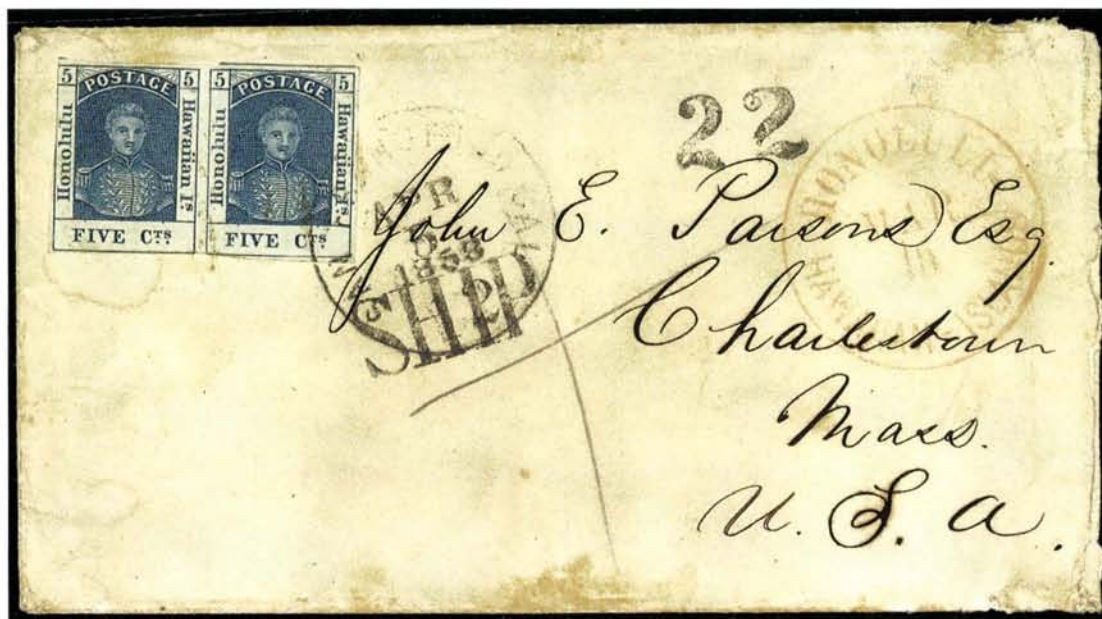 5 POSTAGE 5
Honolulu
Hawaiian Is.
FIVE Cts.
5 POSTAGE 5
Honolulu
Hawaiian Is.
FIVE Cts.
22
HONOLULU
APR
1858
SHIP
John E. Parsons Esq
Charlestown
Mass.
U. S. A.